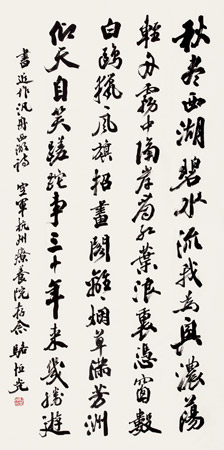 秋西湖碧水流我為興濃蕩
輕舟霧中隔岸尋紅葉浪裏憑窗數
白鷗獵〻風旗招畫閣離〻烟草滿芳洲
仰天自笑蹉跎事三十年來幾勝遊
書近作汎舟西湖詩 空軍杭州療養院存念 駱恒光